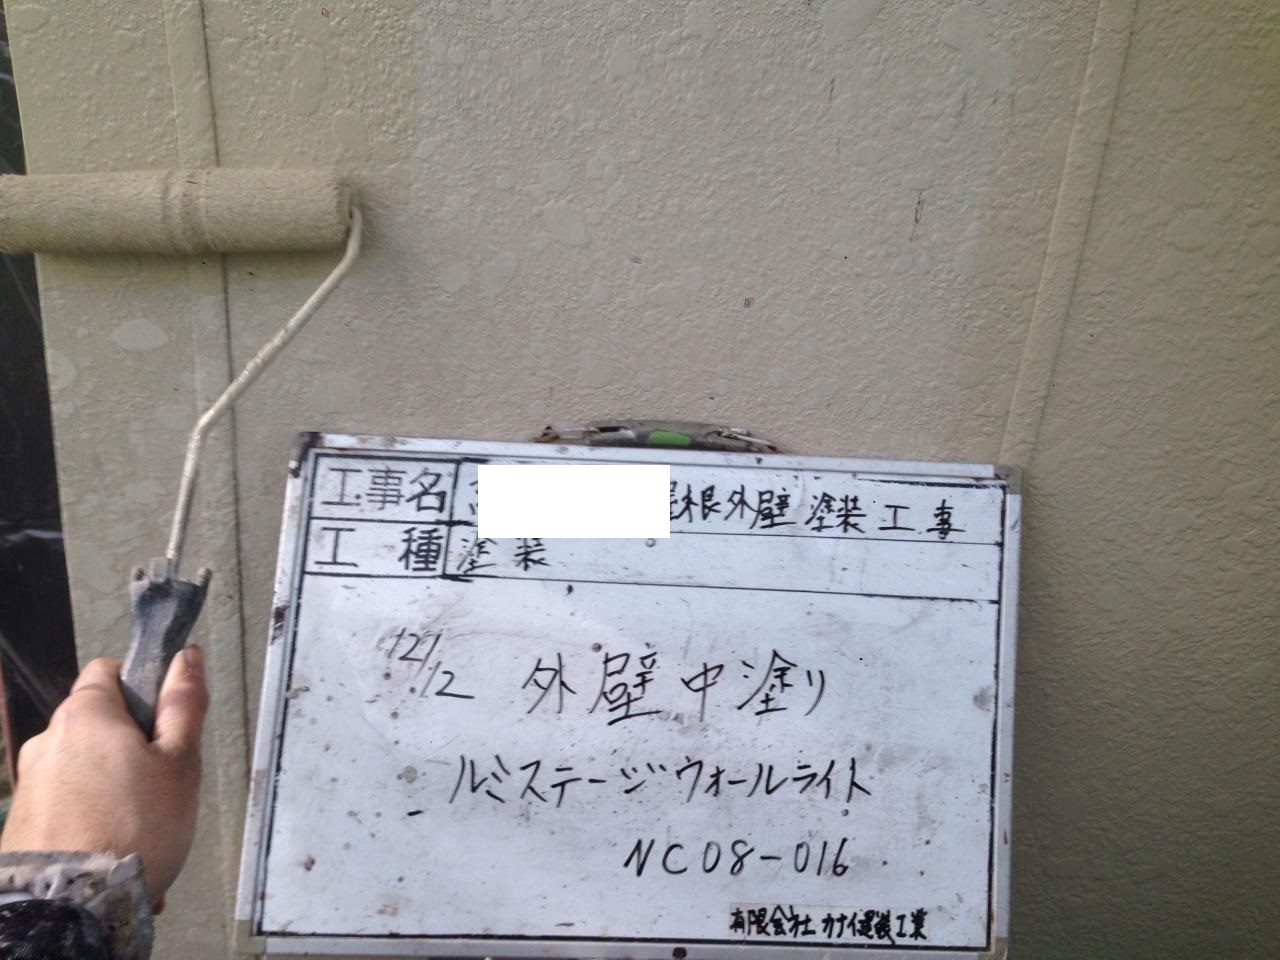 工事名 根外壁塗装工事
工種 塗装
12/12 外壁中塗り
ルミステージウォールライト
NC08-016
有限会社カナイ建装工業